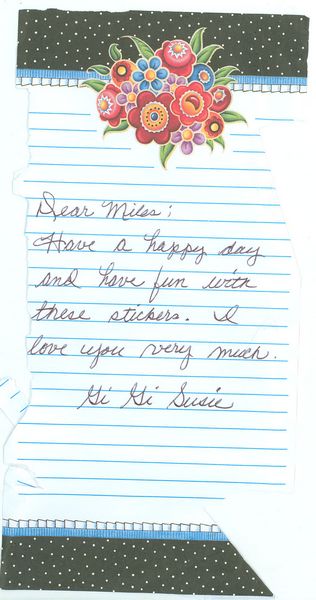 Dear Miles;
Have a happy day
and have fun with
these stickers. I
love you very much.
Gi Gi Susie